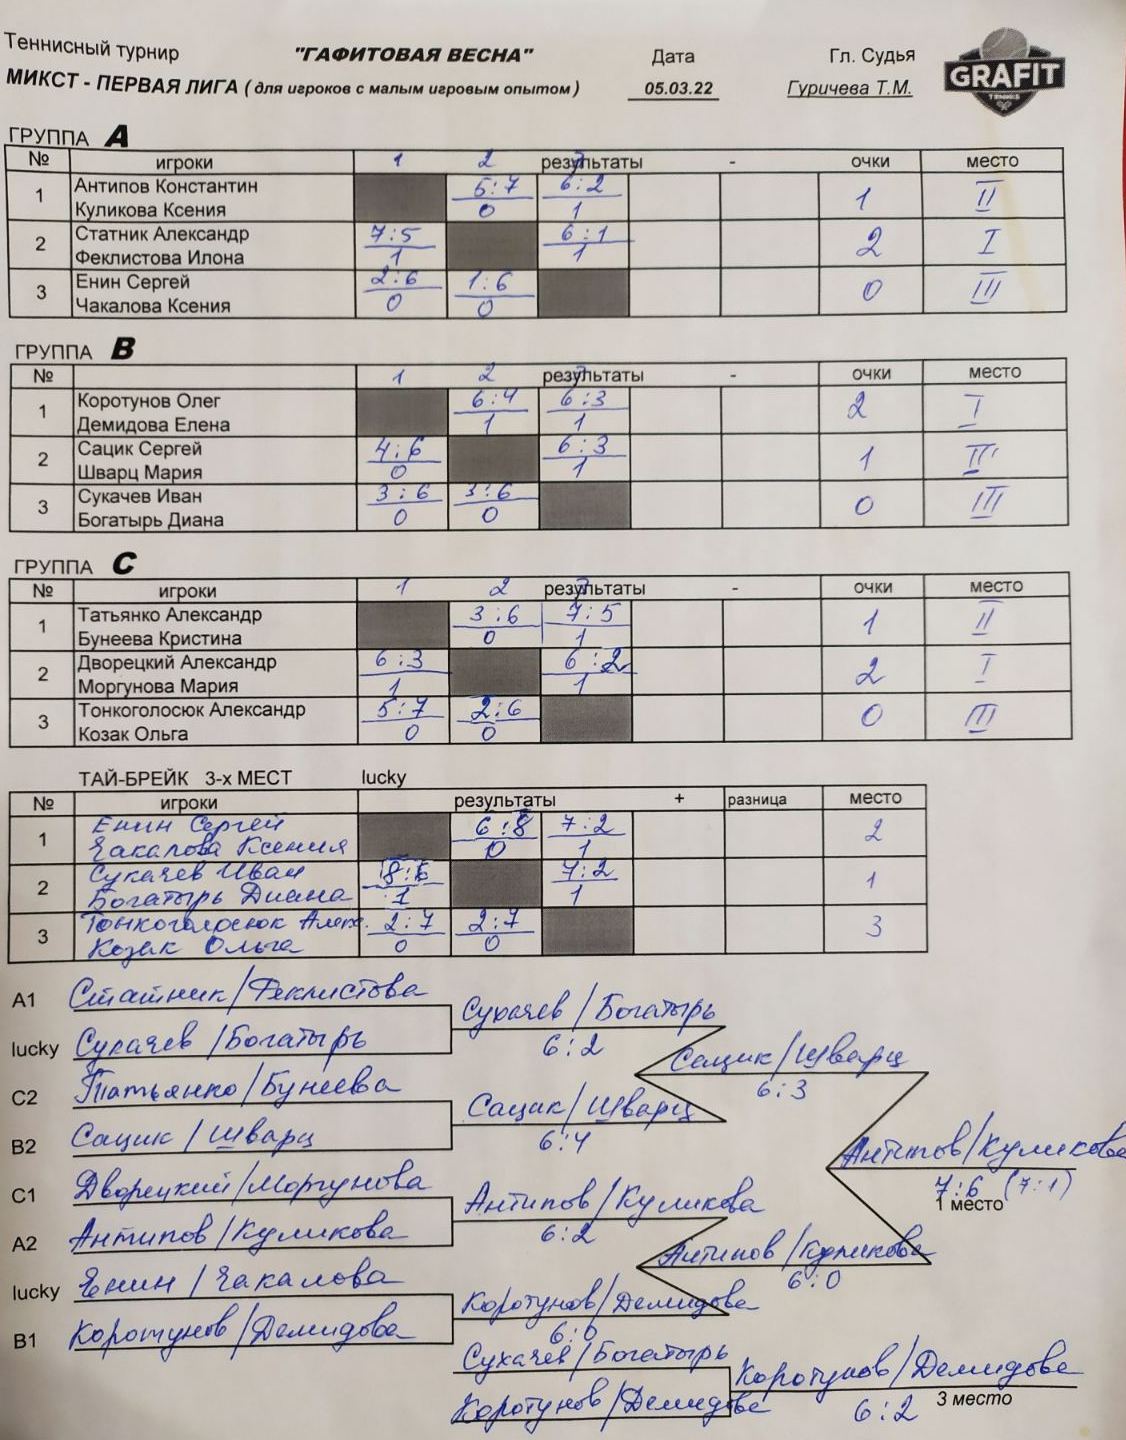 Теннисный турнир "ГАФИТОВАЯ ВЕСНА" Дата Гл. Судья
МИКСТ - ПЕРВАЯ ЛИГА ( для игроков с малым игровым опытом ) 05.03.22 Гуричева Т.М.
GRAFIT
TENNIS
ГРУППА A
№ игроки 1 2 результаты - очки место
1 Антипов Константин 5:7 6:2 1 II
Куликова Ксения 0 1
2 Статник Александр 7:5 6:1 2 I
Феклистова Илона 1 1
3 Енин Сергей 2:6 1:6 0 III
Чакалова Ксения 0 0
ГРУППА B
№ 1 2 результаты - очки место
1 Коротунов Олег 6:4 6:3 2 I
Демидова Елена 1 1
2 Сацик Сергей 4:6 6:3 1 II
Шварц Мария 0 1
3 Сукачев Иван 3:6 3:6 0 III
Богатырь Диана 0 0
ГРУППА C
№ игроки 1 2 результаты - очки место
1 Татьянко Александр 3:6 7:5 1 II
Бунеева Кристина 0 1
2 Дворецкий Александр 6:3 6:2 2 I
Моргунова Мария 1 1
3 Тонкоголосюк Александр 5:7 2:6 0 III
Козак Ольга 0 0
ТАЙ-БРЕЙК 3-х МЕСТ lucky
№ игроки результаты + разница место
1 Енин Сергей 6:8 7:2 2
Чакалова Ксения 0 1
2 Сукачев Иван 8:6 7:2 1
Богатырь Диана 1 1
3 Тонкоголосюк Алекс. 2:7 2:7 3
Козак Ольга 0 0
A1 Статник/Феклистова
Сукачев/Богатырь
6:2
lucky Сукачев/Богатырь
Сацик/Шварц
6:3
C2 Татьянко/Бунеева
Сацик/Шварц
6:4
B2 Сацик/Шварц
Антипов/Куликова
7:6 (7:1)
1 место
C1 Дворецкий/Моргунова
Антипов/Куликова
6:2
A2 Антипов/Куликова
Антипов/Куликова
6:0
lucky Енин/Чакалова
Коротунов/Демидова
6:0
B1 Коротунов/Демидова
Сукачев/Богатырь
Коротунов/Демидова
6:2 3 место
Коротунов/Демидова